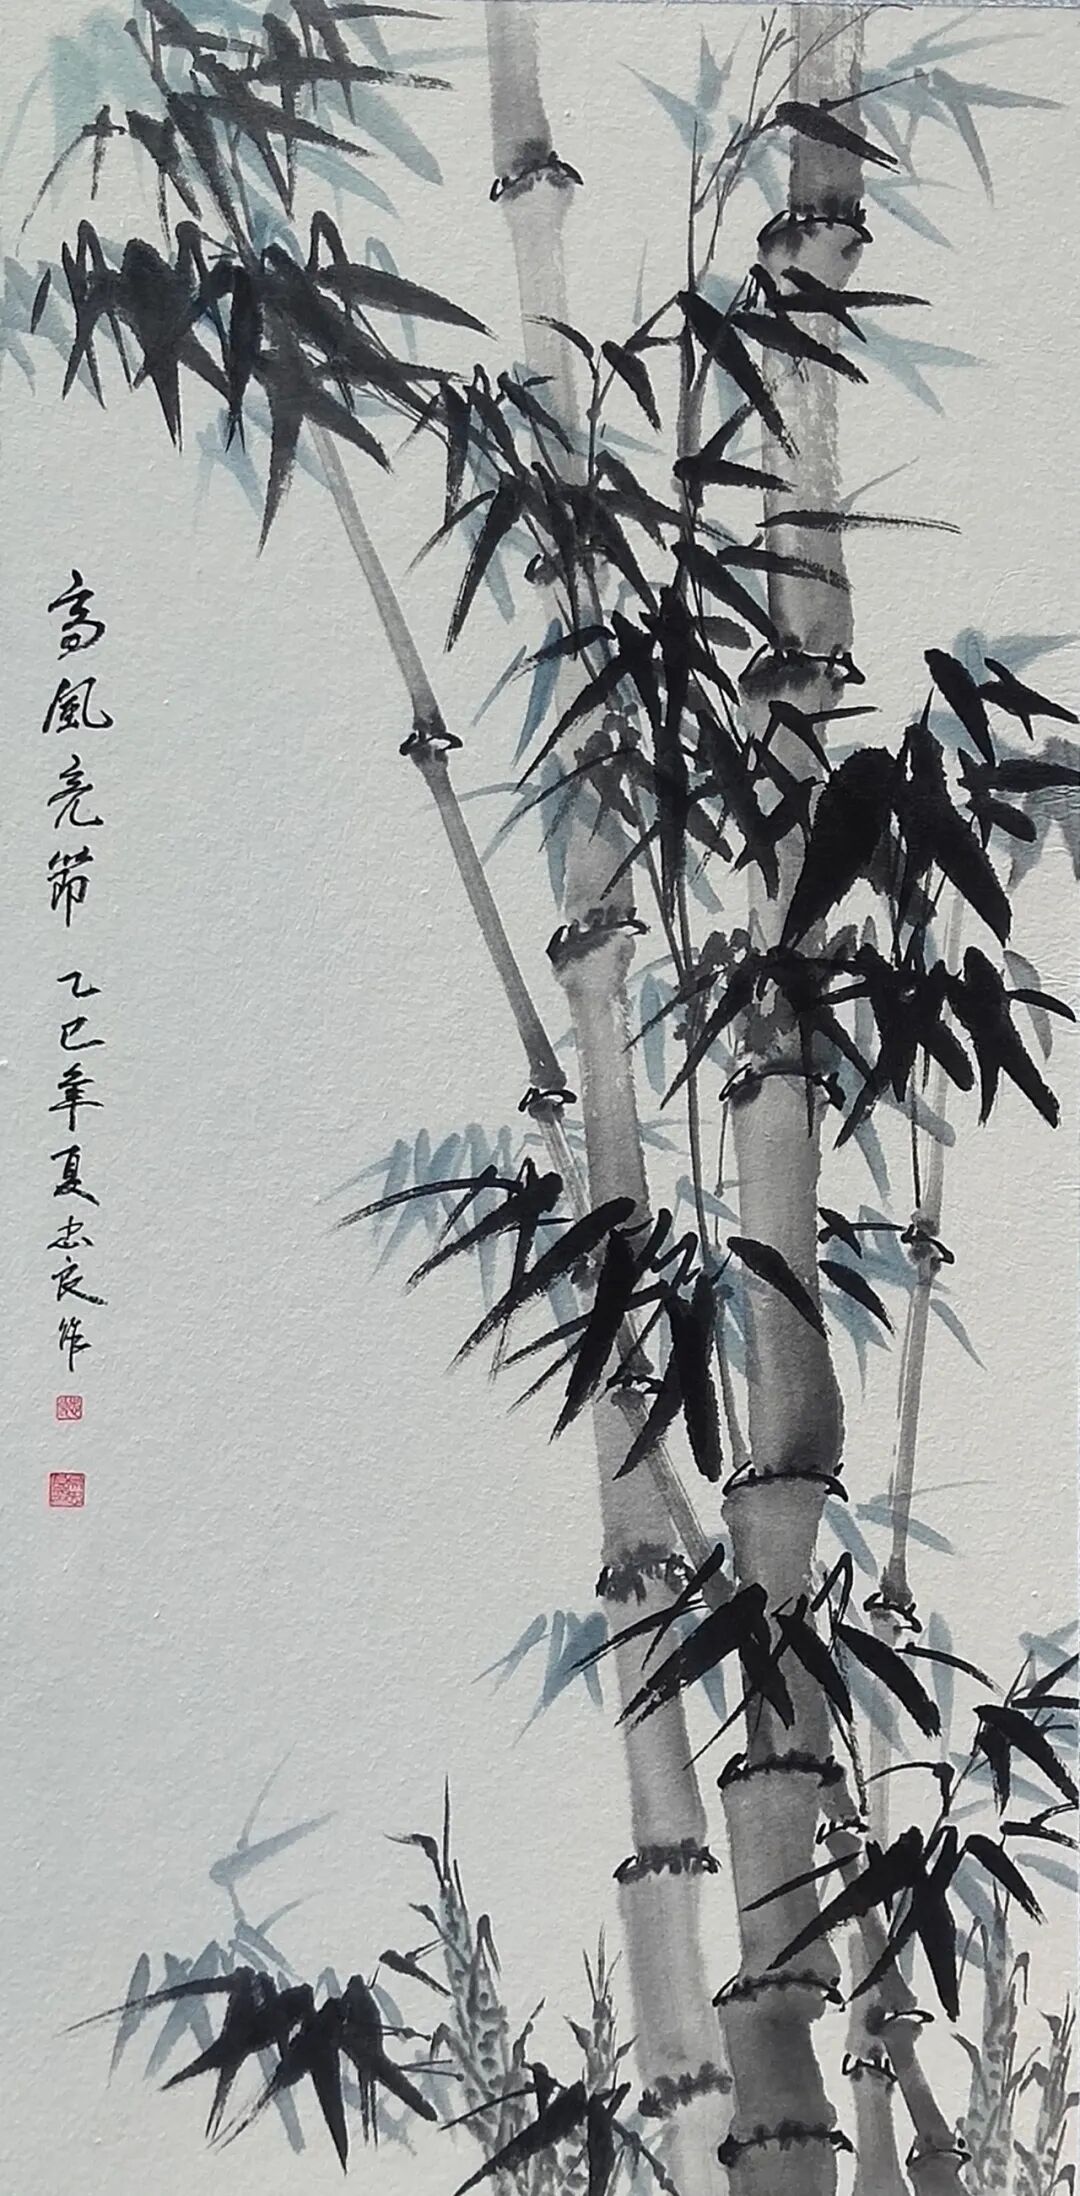 高風亮節 乙巳年夏忠良作